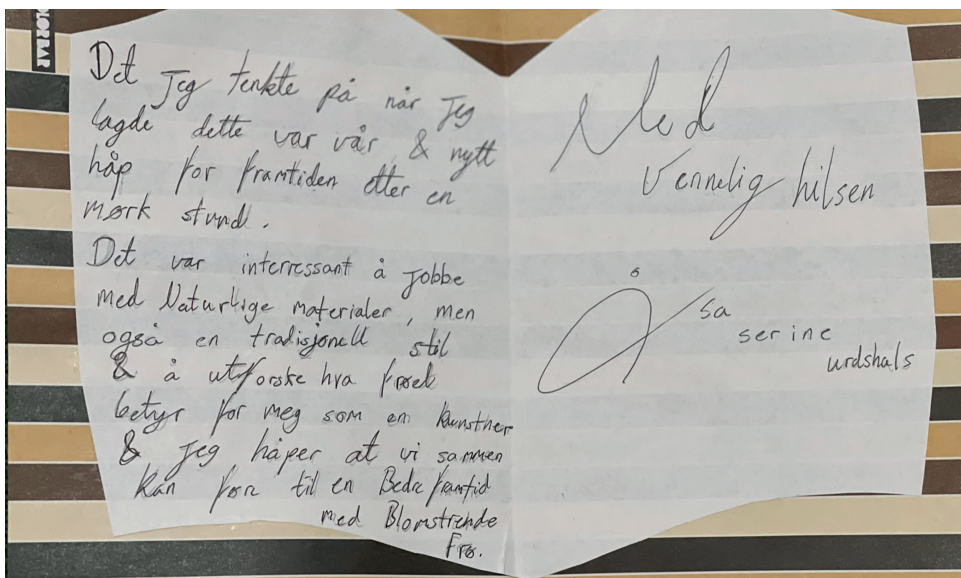 Det jeg tenkte på når jeg
lagde dette var vår & nytt
håp for framtiden etter en
mørk stund.
Det var interressant å jobbe
med Naturlige materialer, men
også en tradisjonell stil
& å utforske hva frøet
betyr for meg som en kunstner
& jeg håper at vi sammen
kan før til en Bedre framtid
med Blomstrende
Frø.
Med
Vennelig hilsen
Åsa
serine
urdshals